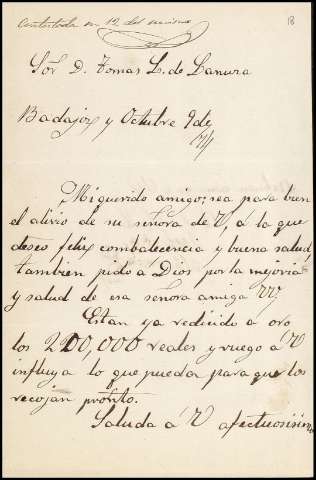 Contestada en 12 del mismo
18
Sor. D. Tomas L. de Lanuza
Badajoz y Octubre 9 de
74
Mi querido amigo; sea para bien
el alivio de su señora de V, á la que
deseo felix combalecencia y buena salud,
tambien pido a Dios por la mejoria
y salud de esa señora amiga VV.
Estan ya reducido a oro
los 200,000 reales y ruego a V
influya lo que pueda para que los
recojan pronto.
Saluda á V afectuosisimo